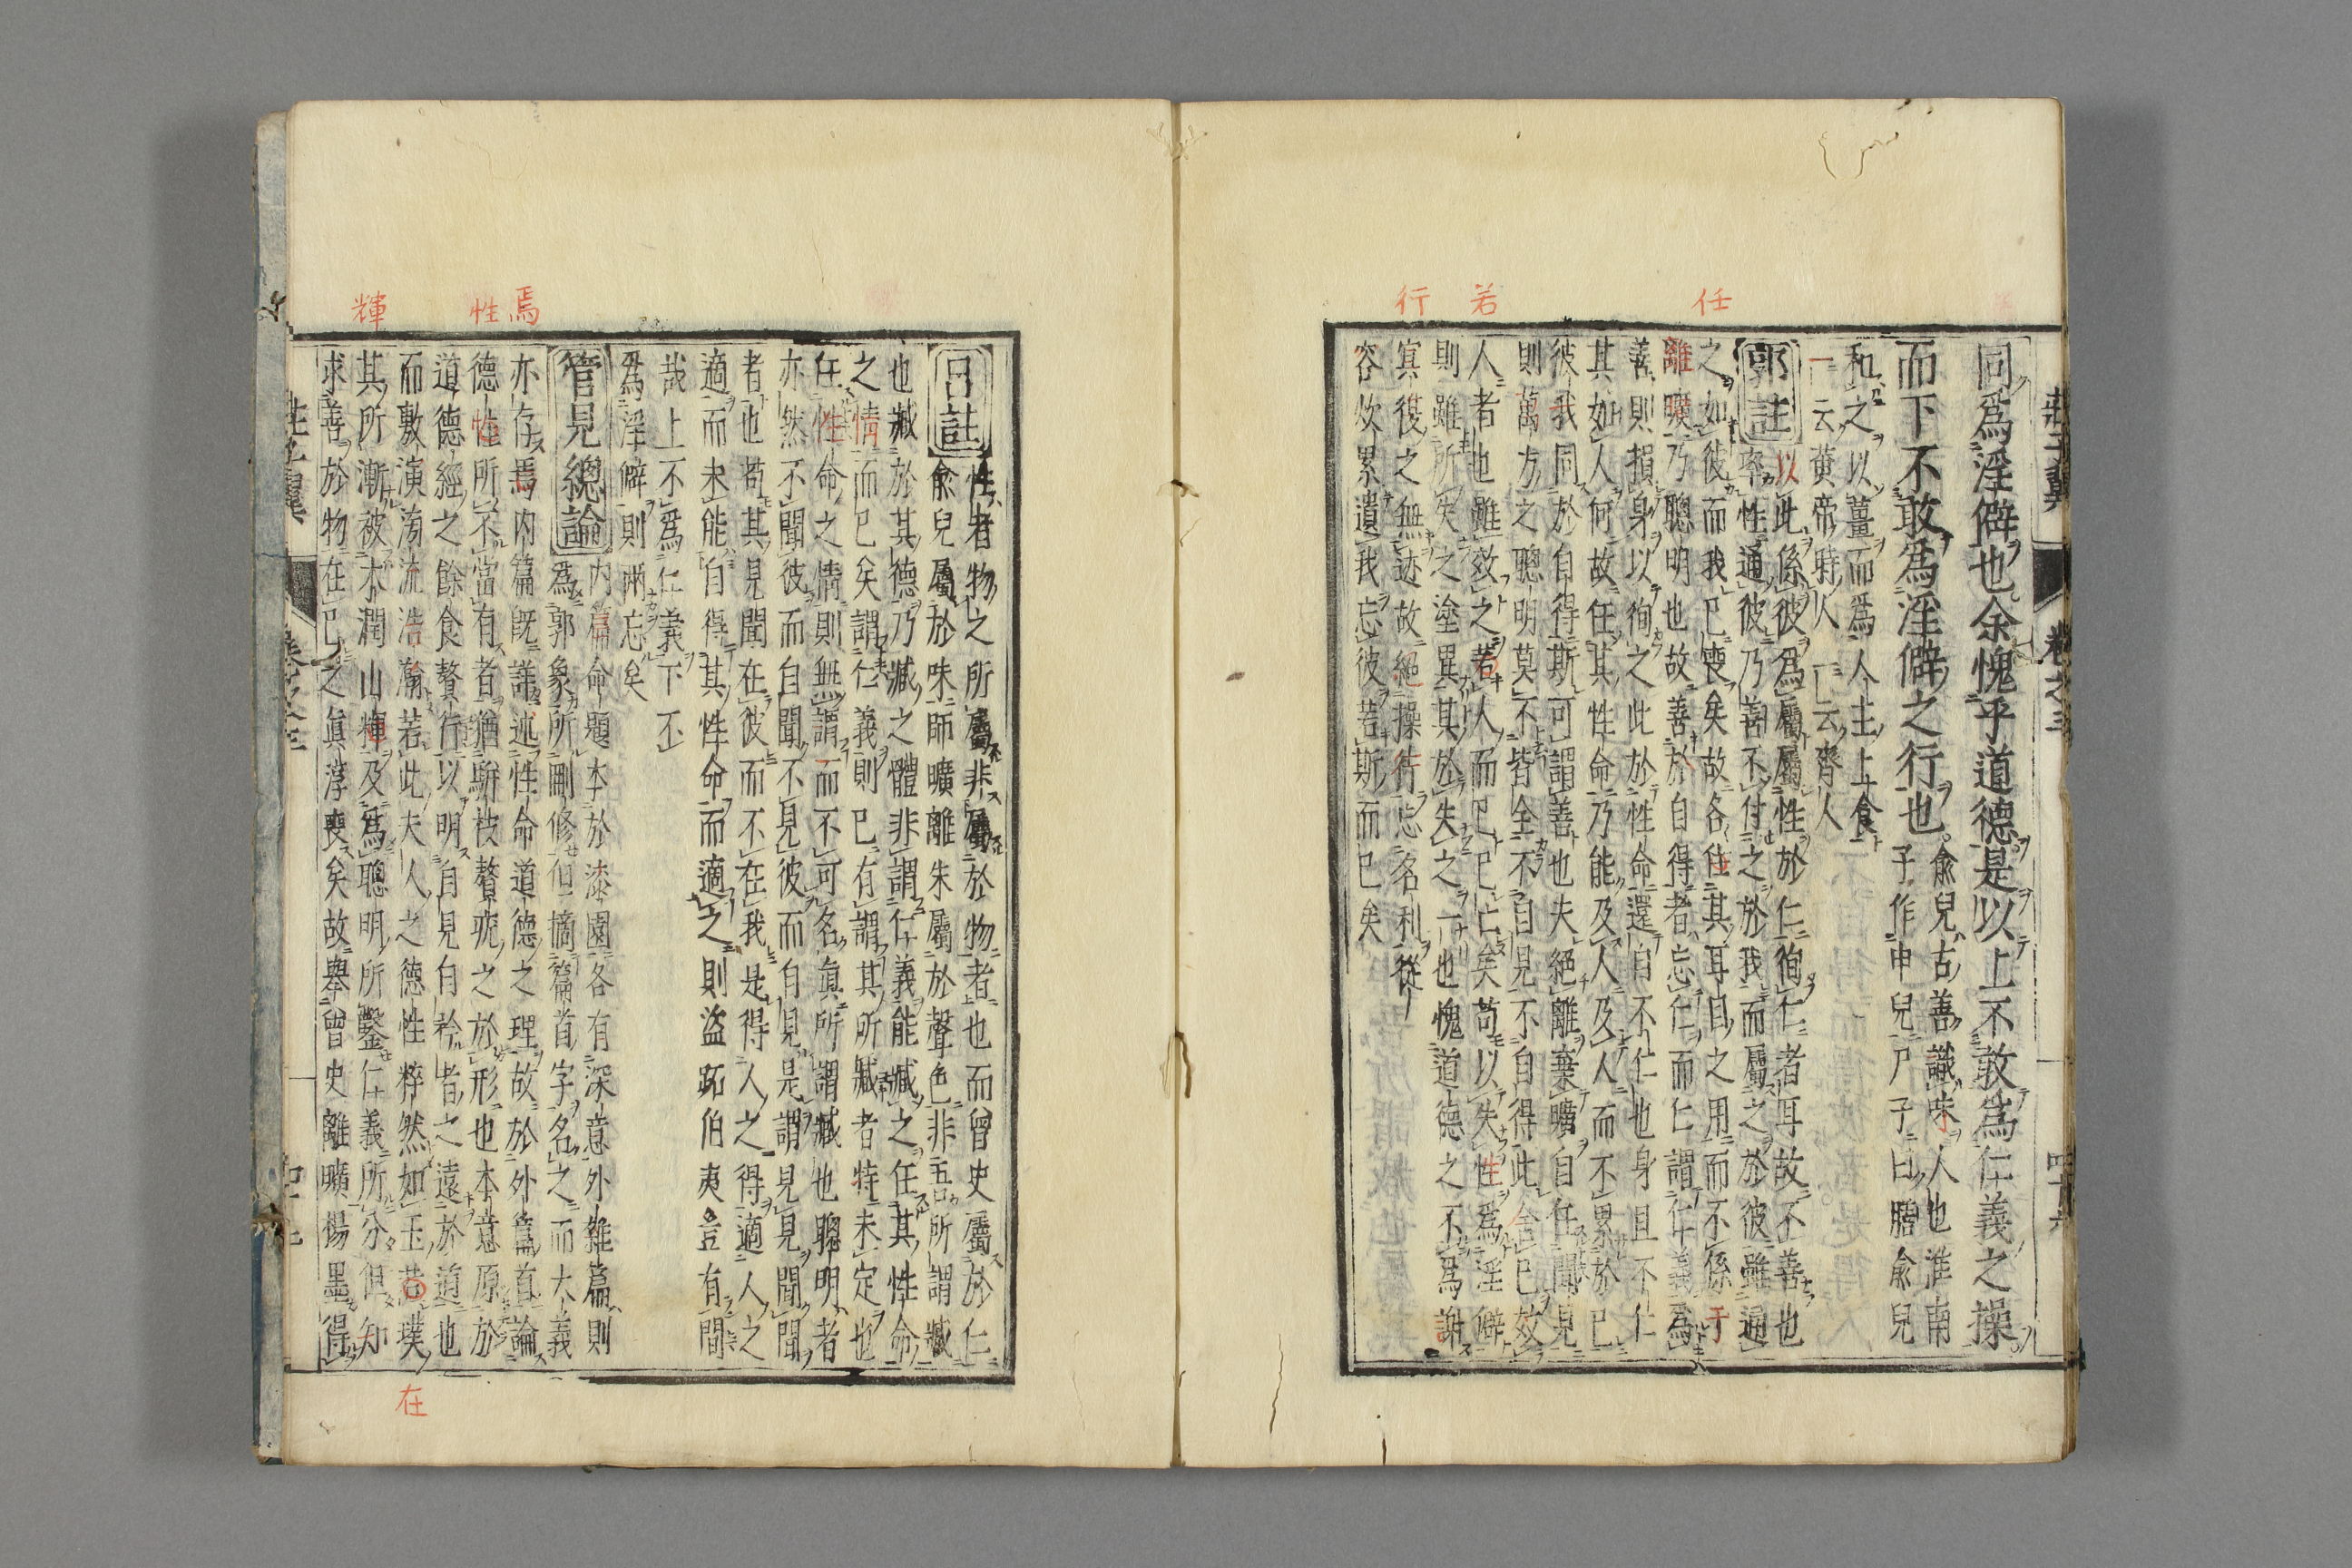 任
若
行
莊子翼
卷之三
同爲淫僻也余愧乎道德是以上不敢爲仁義之操
而下不敢爲淫僻之行也
俞兒古善識味人也淮南
子作申兒尸子曰膳俞兒
和之以薑而爲人主上食
一云黄帝時人一云齊人
郭註
以此係彼爲屬屬性於仁徇仁者耳故不善也
率性通彼乃善不付之於我而屬之於彼雖通
之如彼而我已喪矣故各任其耳目之用而不係于
離曠乃聰明也故善於自得者忘仁而仁謂仁義爲
善則損身以徇之此於性命還自不仁也身且不仁
其如人何故任其性命乃能及人及人而不累於已
彼我同於自得斯可謂善也夫絕離棄曠自任聞見
則萬方之聰明莫不皆全不自見不自得此舍已效
人者也雖效之若人而已已亡矣苟以失性爲淫僻
則雖所失之塗異其於失之一也愧道德之不爲謝
冥復之無迹故絕操行忘名利從
容炊累遺我忘彼若斯而已矣
呂註
性者物之所屬非屬於物者也而曾史屬於仁
俞兒屬於味師曠離朱屬於聲色非吾所謂臧
也臧於其德乃臧之體非謂仁義能臧之任其性命
之情而已矣謂仁義則已有謂其所臧者特未定也
任性命之情則無謂而不可名眞所謂臧也聰明者
亦然不聞彼而自聞不見彼而自見是謂見見聞聞
者也苟其見聞在彼而不在我是得人之得適人之
適而未能自得其性命而適之則盜跖伯夷豈有間
哉上不爲仁義下不
爲淫僻則兩忘矣
管見總論
內篇命題本於漆園各有深意外雜篇則
為郭象所刪修但摘篇首字名之而大義
亦存焉内篇既詳述性命道德之理故於外篇首論
德性所不當有者猶駢枝贅疣之於形也本意原於
道德經之餘食贅行以明自見自矜者之遠於道也
而敷演滂流浩瀚若此夫人之德性粹然如玉在璞
其所漸被木潤山輝及爲聰明所鑿仁義所分但知
求善於物在已之眞淳喪矣故舉曾史離曠楊墨得
焉
性
輝
在